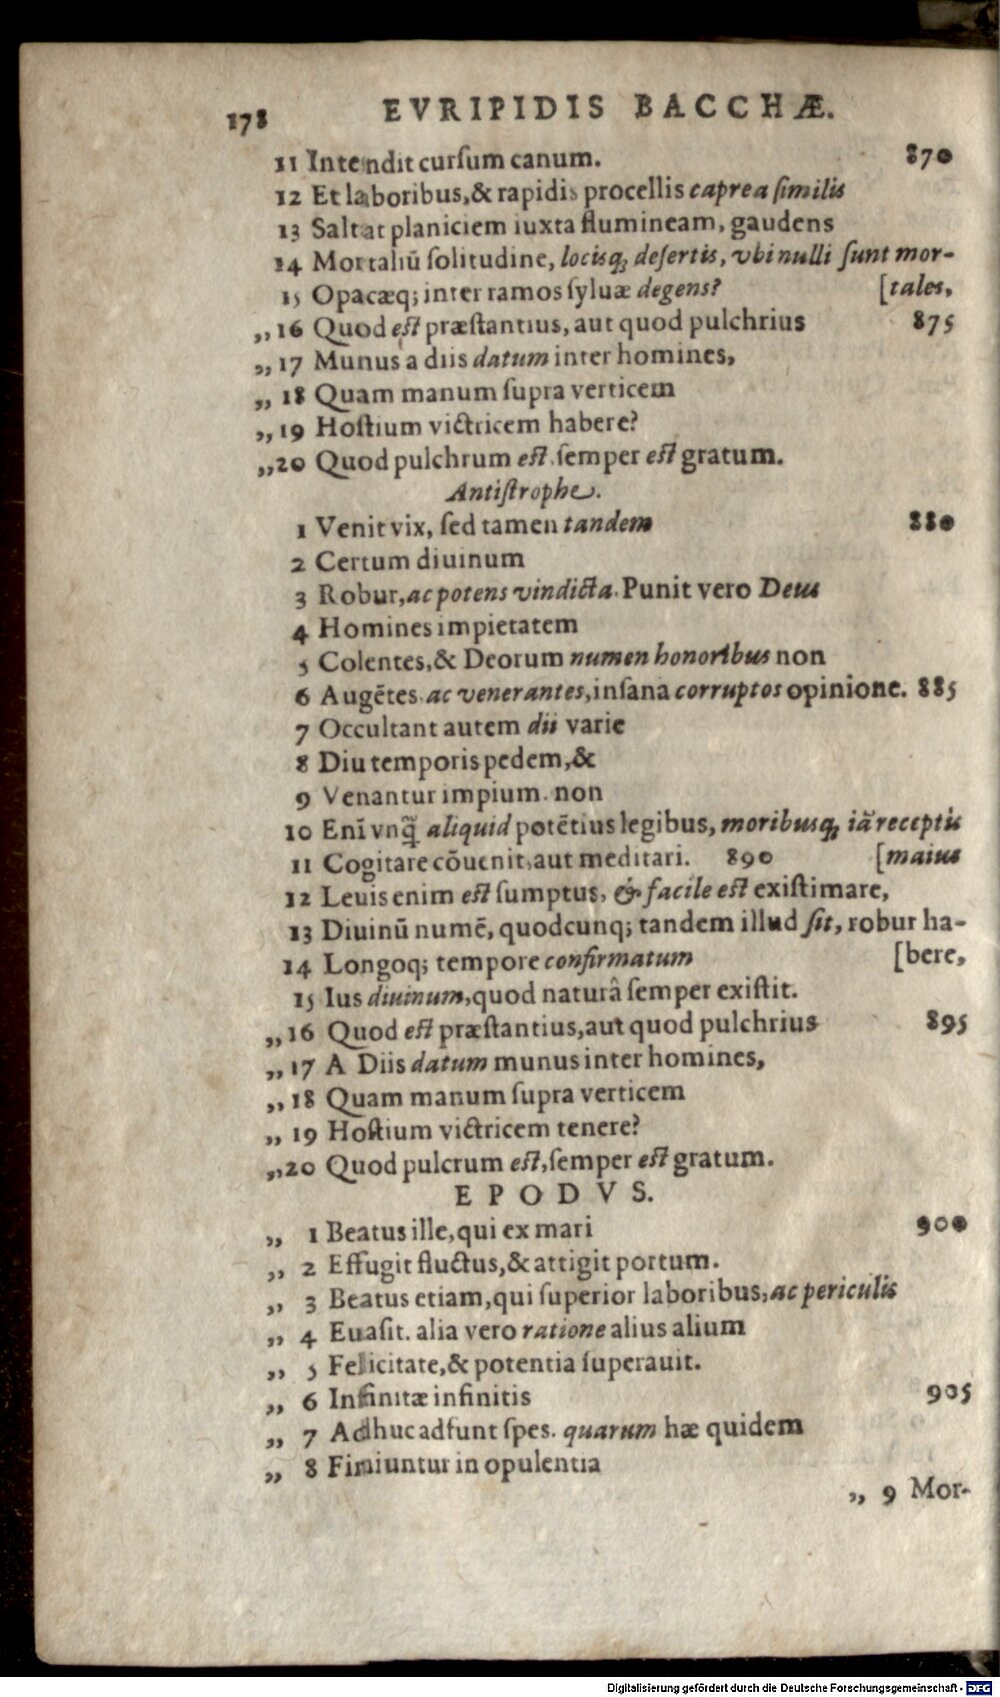 178 EVRIPIDIS BACCHÆ.
11 Intendit curſum canum. 870
12 Et laboribus,& rapidis procellis caprea ſimilis
13 Saltat planiciem iuxta flumineam, gaudens
14 Mortaliū ſolitudine, locisq; deſertis, vbi nulli ſunt mor-
15 Opacæq; inter ramos ſyluæ degens? [tales,
„ 16 Quod eſt præſtantius, aut quod pulchrius 875
„ 17 Munus a diis datum inter homines,
„ 18 Quam manum ſupra verticem
„ 19 Hoſtium victricem habere?
„ 20 Quod pulchrum eſt, ſemper eſt gratum.
Antiſtrophe.
1 Venit vix, ſed tamen tandem 880
2 Certum diuinum
3 Robur, ac potens vindicta. Punit vero Deus
4 Homines impietatem
5 Colentes,& Deorum numen honoribus non
6 Augētes. ac venerantes, inſana corruptos opinione. 885
7 Occultant autem dii varie
8 Diu temporis pedem,&
9 Venantur impium. non
10 Enī vnq̃ aliquid potētius legibus, moribusq; iā receptis
11 Cogitare cōuenit, aut meditari. 890 [maius
12 Leuis enim eſt ſumptus, & facile eſt exiſtimare,
13 Diuinū numē, quodcunq; tandem illud ſit, robur ha-
14 Longoq; tempore confirmatum [bere,
15 Ius diuinum, quod naturâ ſemper exiſtit.
„ 16 Quod eſt præſtantius, aut quod pulchrius 895
„ 17 A Diis datum munus inter homines,
„ 18 Quam manum ſupra verticem
„ 19 Hoſtium victricem tenere?
„ 20 Quod pulcrum eſt, ſemper eſt gratum.
EPODVS.
„ 1 Beatus ille, qui ex mari 900
„ 2 Effugit fluctus,& attigit portum.
„ 3 Beatus etiam, qui ſuperior laboribus, ac periculis
„ 4 Euaſit. alia vero ratione alius alium
„ 5 Felicitate,& potentia ſuperauit.
„ 6 Infinitæ infinitis 905
„ 7 Adhuc adſunt ſpes. quarum hæ quidem
„ 8 Finiuntur in opulentia
„ 9 Mor-
Digitalisierung gefördert durch die Deutsche Forschungsgemeinschaft - DFG